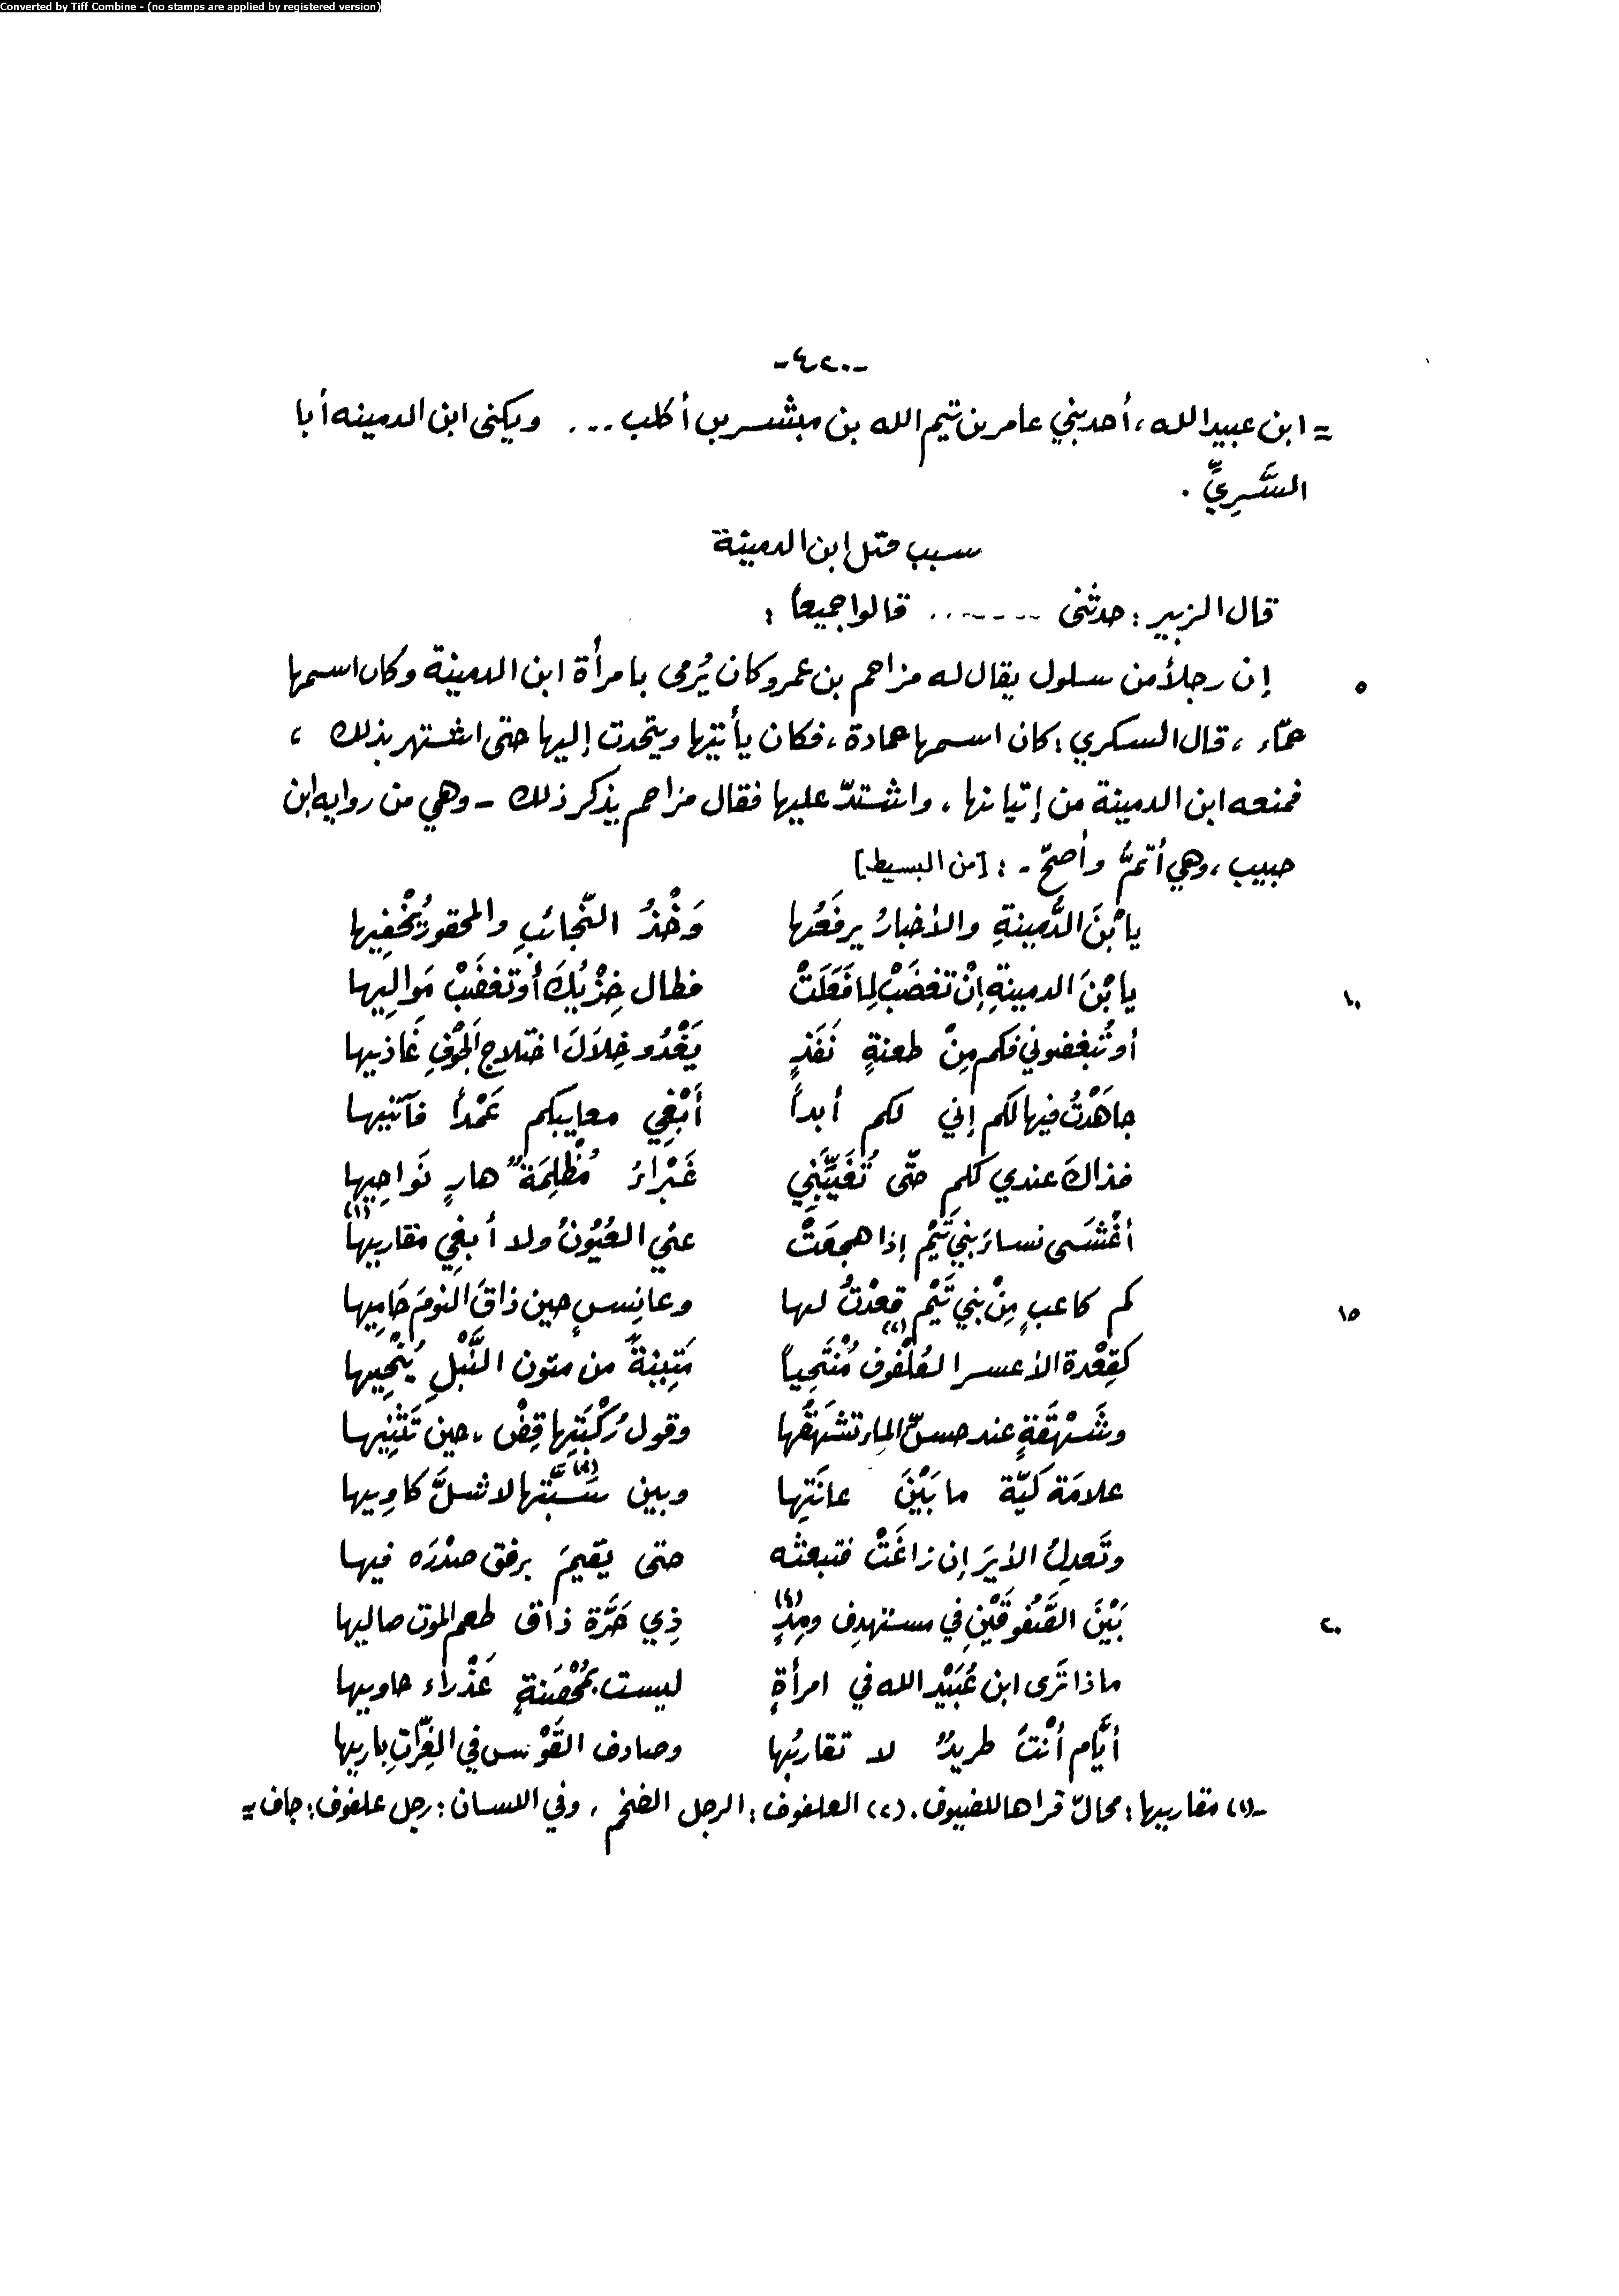 Converted by Tiff Combine - (no stamps are applied by registered version)
-٤٢٠-
= ابن عبيد الله، أحد بني عامر بن تيم الله بن مبشر بن أكلب ... ويكنى ابن الدمينه أبا
السَّرِيِّ .
سبب مقتل ابن الدمينة
قال الزبير : حدثنى ........ قالوا جميعاً :
٥ إن رجلاً من سلول يقال له مزاحم بن عمرو كان يُرمى بامرأة ابن الدمينة وكان اسمها
حمّاء ، قال السكري : كان اسمها حمادة ، فكان يأتيها ويتحدث إليها حتى اشتهر بذلك ،
فمنعه ابن الدمينة من إتيانها ، واشتدّ عليها فقال مزاحم يذكر ذلك - وهي من روايه ابن
حبيب ، وهي أتمُّ وأصحّ - : [من البسيط]
يا بْنَ الدُّمينةِ والأخبارُ يرفَعُها وَخْدُ النّجائبِ والمحقورُ يُخْفِيها
١٠ يا بْنَ الدمينةِ إنْ تغضَبْ لِمَا فَعَلَتْ فطال خِزْيُكَ أو تغضَبْ مَوالِيها
أو تُبغضوني فكم مِنْ طعنةٍ نَفَذٍ يَغْدُو خِلاَلَ اختلاجِ الجَوْفِ غَاذيها
جاهَدْتُ فيها لكم إني لكم أبداً أبْغِي معايبكم عَمْداً فآتيها
فذاكَ عندي لكم حتّى تُغَيِّبَنِي غَبْرَاءُ مُظْلِمَةٌ هارٍ نَواحِيها
أغْشَى نساءَ بني تَيْمٍ إذا هجعَتْ عني العُيُونُ ولا أبغي مقاريها (١)
١٥ كم كاعبٍ مِنْ بني تَيْمٍ قعدْتُ لها وعانِسٍ حين ذاقَ النومَ حَامِيها
كقِعْدة الأعسر العُلْفُوف (٢) مُنْتَحِياً مَتِينةً من متون النَّبْلِ يُنْحِيها
وشَهْقَةٍ عند حسّ الماء تشهَقُها وقول رُكْبَتِها قِضْ ، حين تَثْنِيها
علامَة كَيّة ما بَيْنَ عانَتِها وبين سَبَّتِها (٣) لا شلَّ كاوِيها
وتَعدِلُ الأيرَ إن زاغَتْ فتبعثه حتى يقيمَ برفق صدْرَه فيها
٢٠ بَيْنَ الصَّفُوقَيْنِ في مستهدفٍ ومِدٍ (٤) ذِي حَرَّة ذاق طعم الموت صاليها
ماذا تَرَى ابن عُبَيْد الله في امرأةٍ ليست بمُحْصَنةٍ عَذْراء حاويها
أيَّام أنْتَ طريدٌ لا تقاربُها وصادف القَوْس في الغِرَّاتِ باريها
-(١) مقاريها : محالّ قراها للضيوف . (٢) العلفوف : الرجل الضخم ، وفي اللسان : رجل علفوف : جاف =